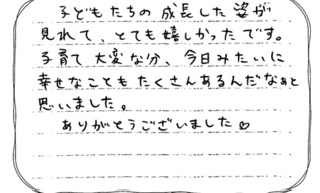 子どもたちの成長した姿が
見れて、とても嬉しかったです。
子育て大変な分、今日みたいに
幸せなこともたくさんあるんだなぁと
思いました。
ありがとうございました♡